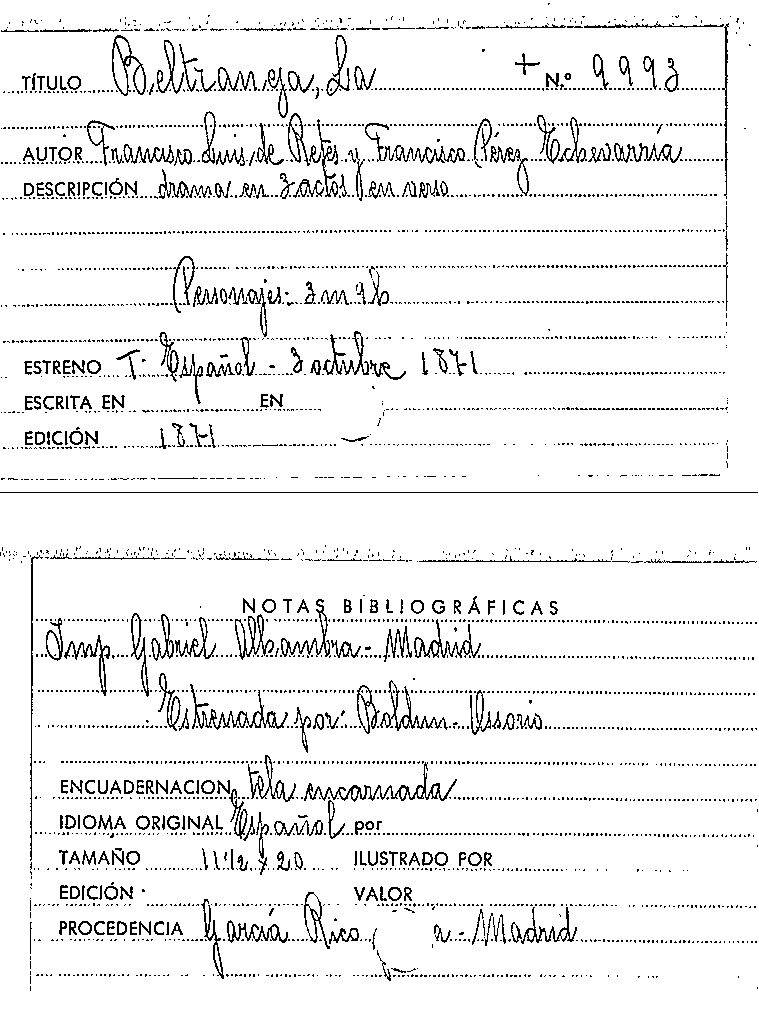 TÍTULO Beltraneja, La + N.º 9993
AUTOR Francisco Luis de Retes y Francisco Pérez Echevarría
DESCRIPCIÓN drama en 3 actos en verso
Personajes: 3m 9h
ESTRENO T. Español - 3 octubre 1871
ESCRITA EN EN
EDICIÓN 1871
NOTAS BIBLIOGRÁFICAS
Imp. Gabriel Alhambra - Madrid
Estrenada por: Boldun - Ossorio
ENCUADERNACION tela encarnada
IDIOMA ORIGINAL Español por
TAMAÑO 11'½ x 20 ILUSTRADO POR
EDICIÓN VALOR
PROCEDENCIA García Rico a - Madrid